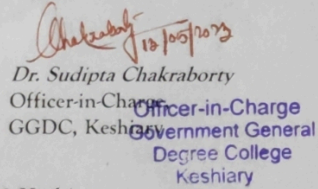 Chakraborty
12/05/2023
Dr. Sudipta Chakraborty
Officer-in-Charge
GGDC, Keshiary
Officer-in-Charge
Government General
Degree College
Keshiary